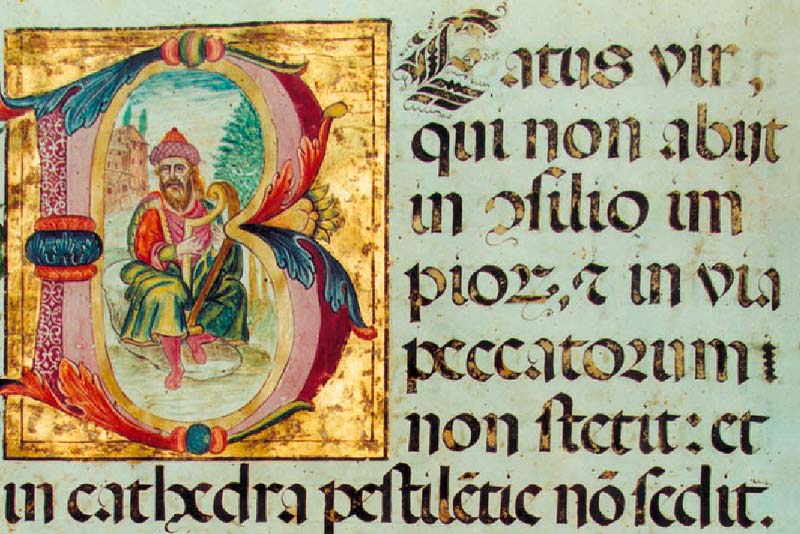 BEatus vir,
qui non abijt
in ꝯsilio im
pioꝝ, ⁊ in via
peccatorum
non stetit: et
in cathedra pestilētie nō sedit.